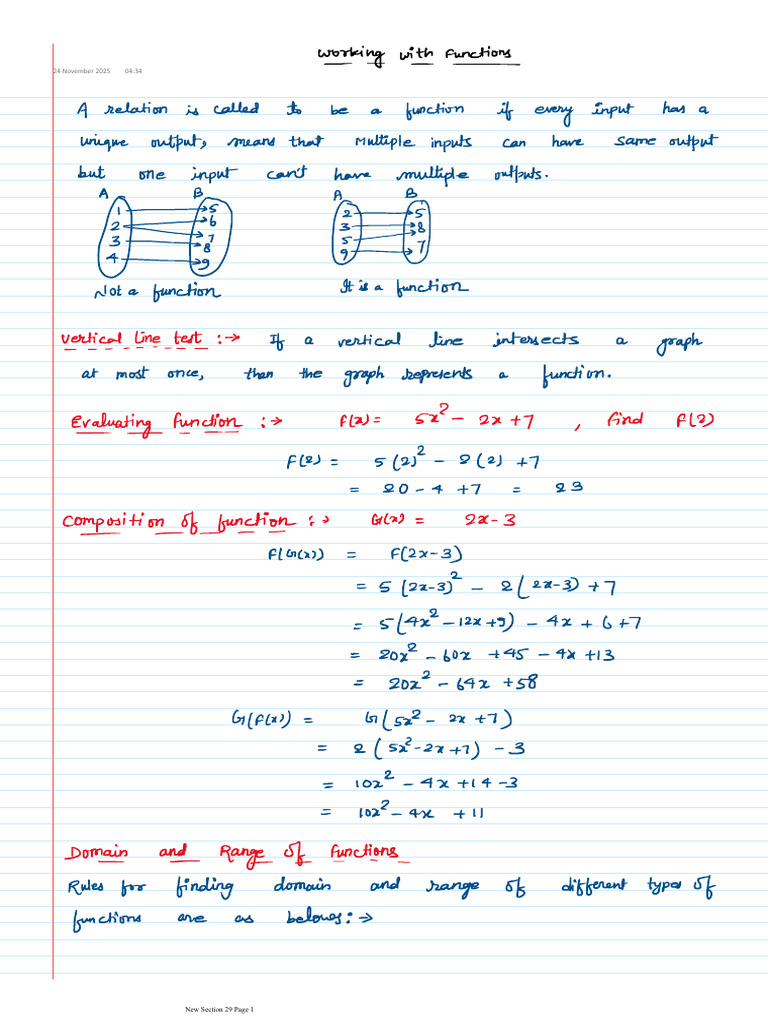 Working with Functions
24 November 2025 04:34
A relation is called to be a function if every input has a
unique output, means that Multiple inputs can have same output
but one input can't have multiple outputs.
A B A B
1 5 2 5
2 6 3 8
3 7 5 7
4 8 9
9
Not a function It is a function
Vertical Line test :→ If a vertical line intersects a graph
at most once, than the graph represents a function.
Evaluating function :→ F(x) = 5x² - 2x + 7 , Find F(2)
F(2) = 5(2)² - 2(2) + 7
= 20 - 4 + 7 = 23
Composition of function :→ G(x) = 2x - 3
F(G(x)) = F(2x-3)
= 5(2x-3)² - 2(2x-3) + 7
= 5(4x² - 12x + 9) - 4x + 6 + 7
= 20x² - 60x + 45 - 4x + 13
= 20x² - 64x + 58
G(F(x)) = G(5x² - 2x + 7)
= 2(5x² - 2x + 7) - 3
= 10x² - 4x + 14 - 3
= 10x² - 4x + 11
Domain and Range of Functions
Rules for finding domain and range of different types of
functions are as belows :→
New Section 29 Page 1